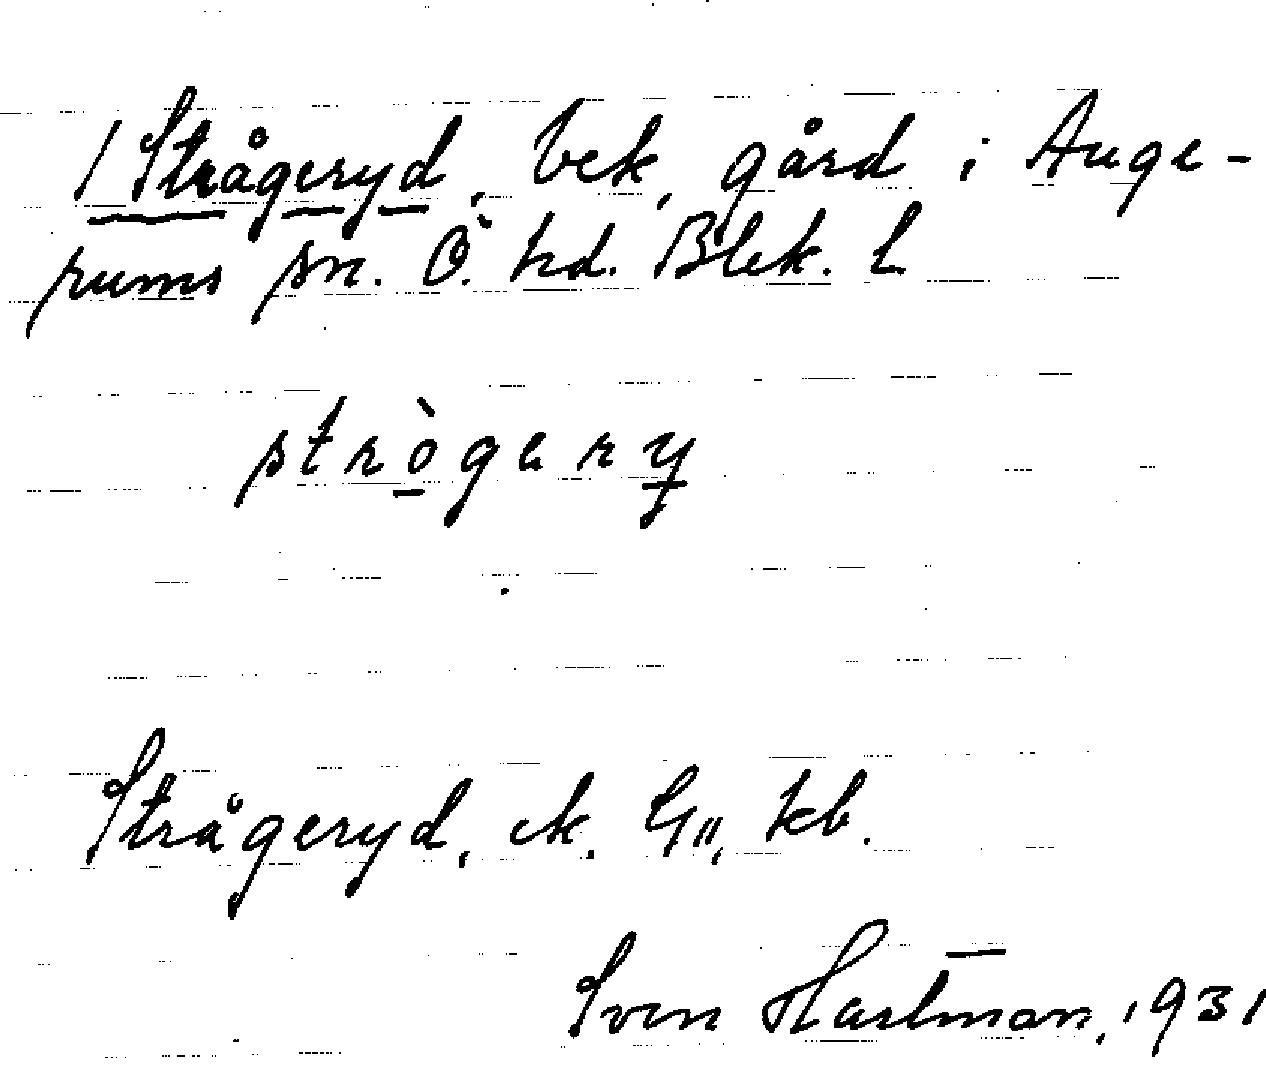 / Strågeryd, bek, gård i Auge-
rums sn. Ö. hd. Blek. L
strògery
Strågeryd, ek. G11, kb.
Sven Hartman, 1931